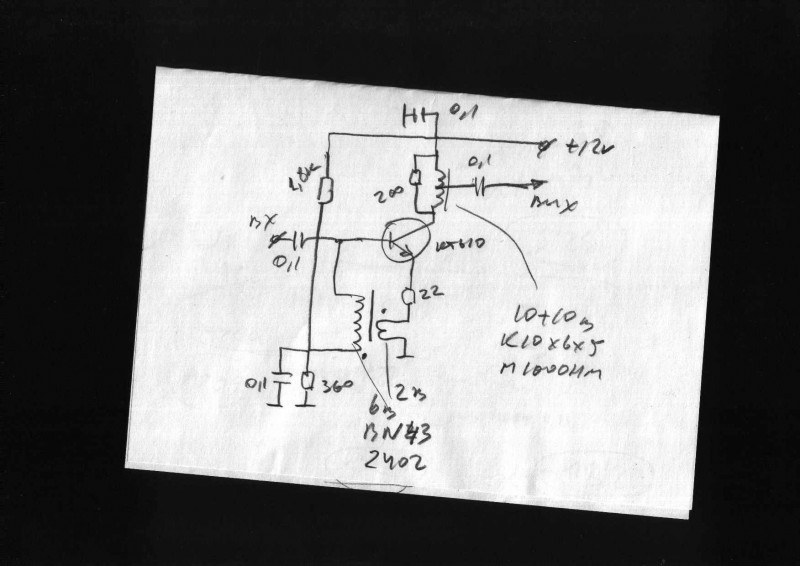 0,1
+12v
0,1
1,8к
200
ВЫХ
ВХ
0,1
КТ610
22
10+10в
К10х6х5
М1000НМ
0,1
360
2в
6в
BN43
2402